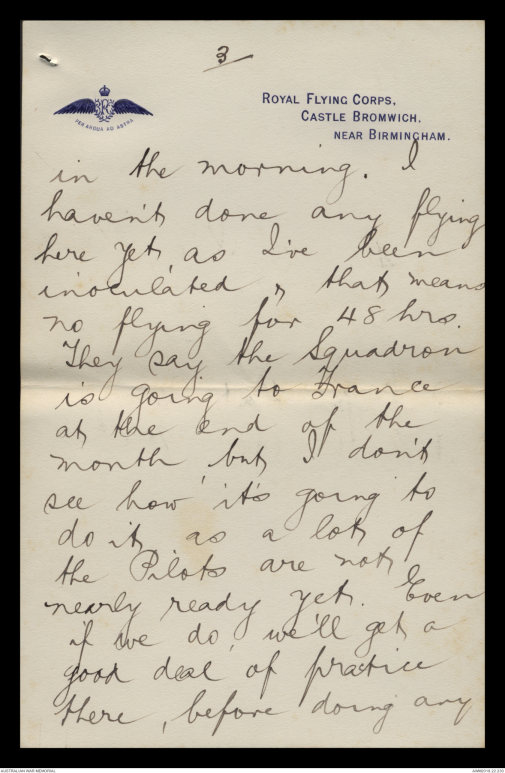 3
PER ARDUA AD ASTRA
ROYAL FLYING CORPS,
CASTLE BROMWICH,
NEAR BIRMINGHAM.
in the morning. I
haven't done any flying
here yet, as I've been
inoculated & that means
no flying for 48 hrs.
They say the Squadron
is going to France
at the end of the
month, but I don't
see how it's going to
do it, as a lot of
the Pilots are not
nearly ready yet. Even
if we do, we'll get a
good deal of practice
there, before doing any
AUSTRALIAN WAR MEMORIAL